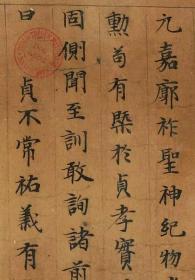 元嘉廓祚聖神紀物
勲苟有槩於貞孝實
固側聞至訓敢詢諸前
曰貞不常祐義有